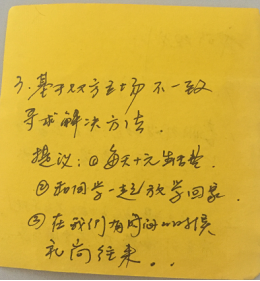 3.基于双方立场不一致
寻求解决方法.
提议:①每天十元生活费.
②和同学一起放学回家.
③在我们有时间的时候
礼尚往来..